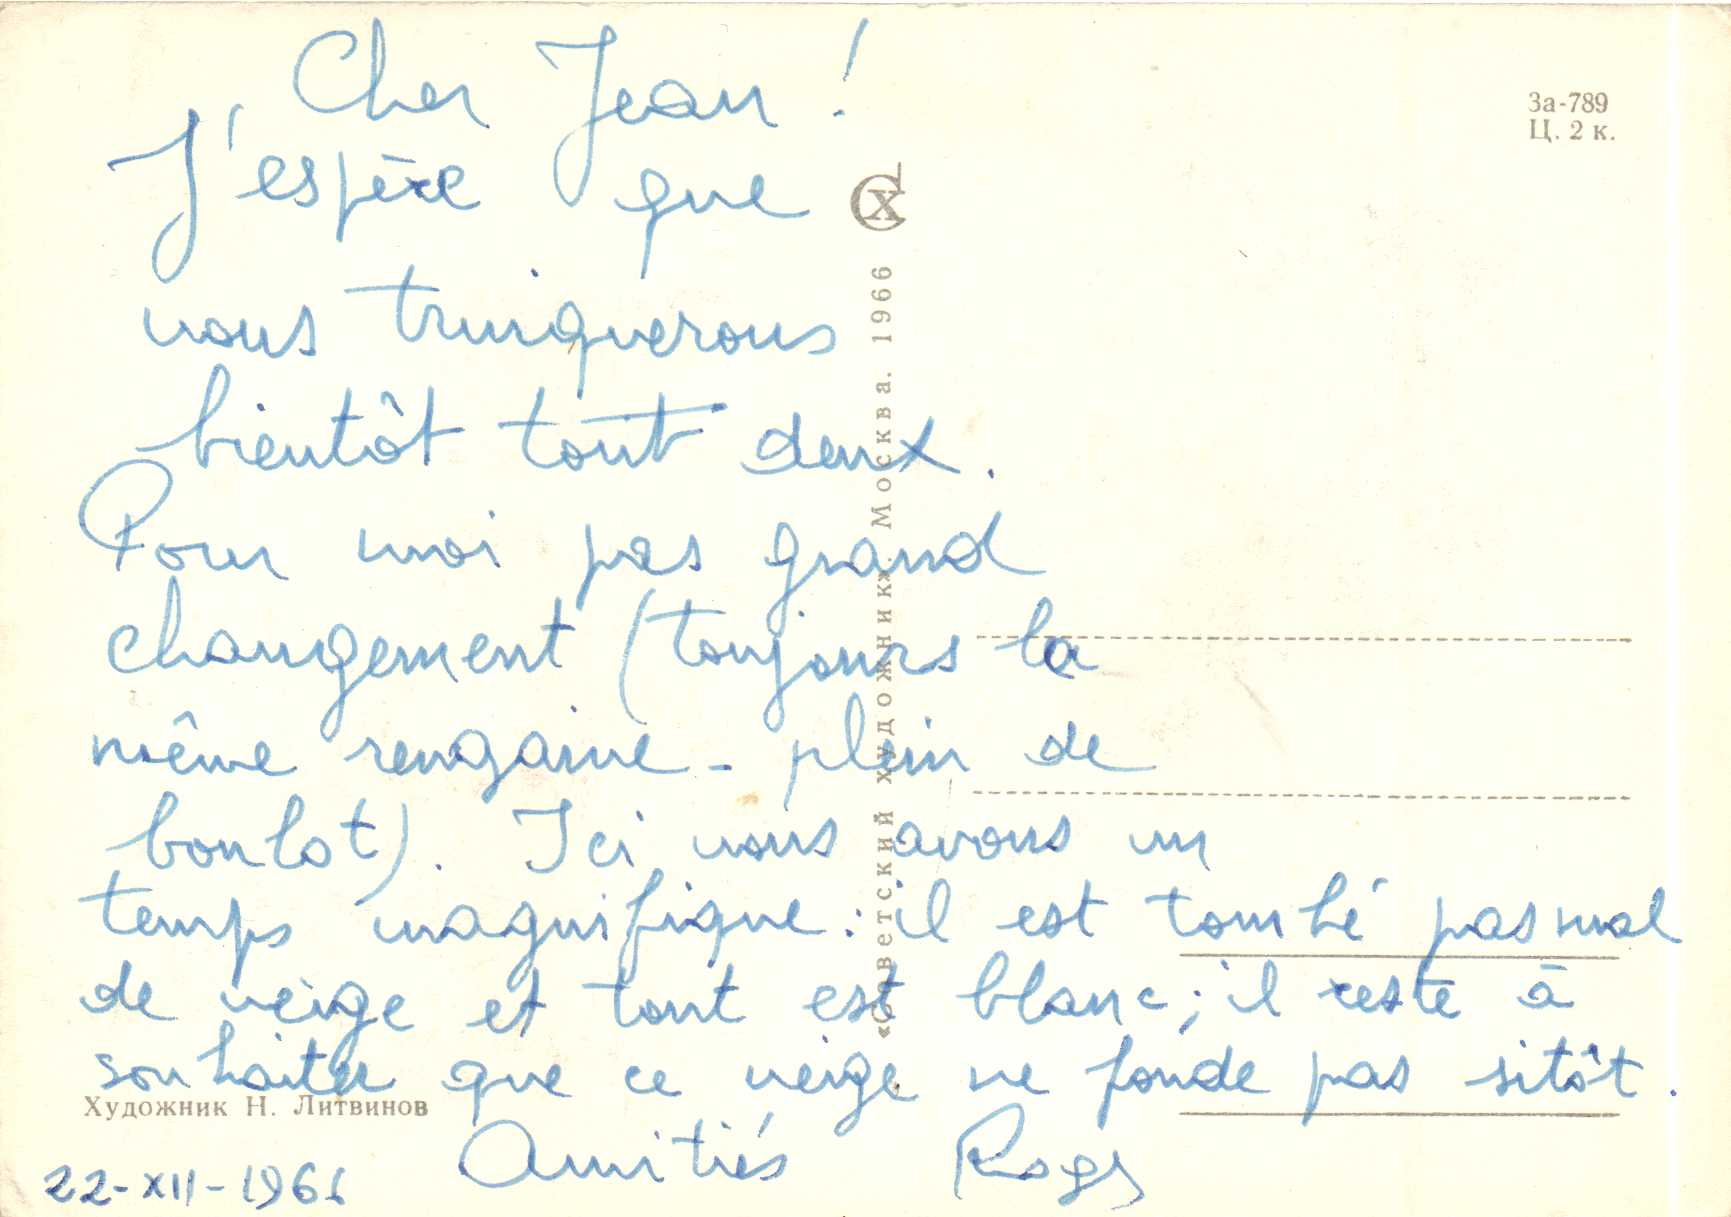 Cher Jean !
J'espère que
nous trinquerons
bientôt tout deux.
Pour moi pas grand
changement (toujours la
même rengaine - plein de
boulot). Ici nous avons un
temps magnifique : il est tombé pas mal
de neige et tout est blanc ; il reste à
souhaiter que ce neige ne fonde pas sitôt.
Amitiés
22-XII-1966
За-789
Ц. 2 к.
СХ
«Советский художник». Москва. 1966
Художник Н. Литвинов